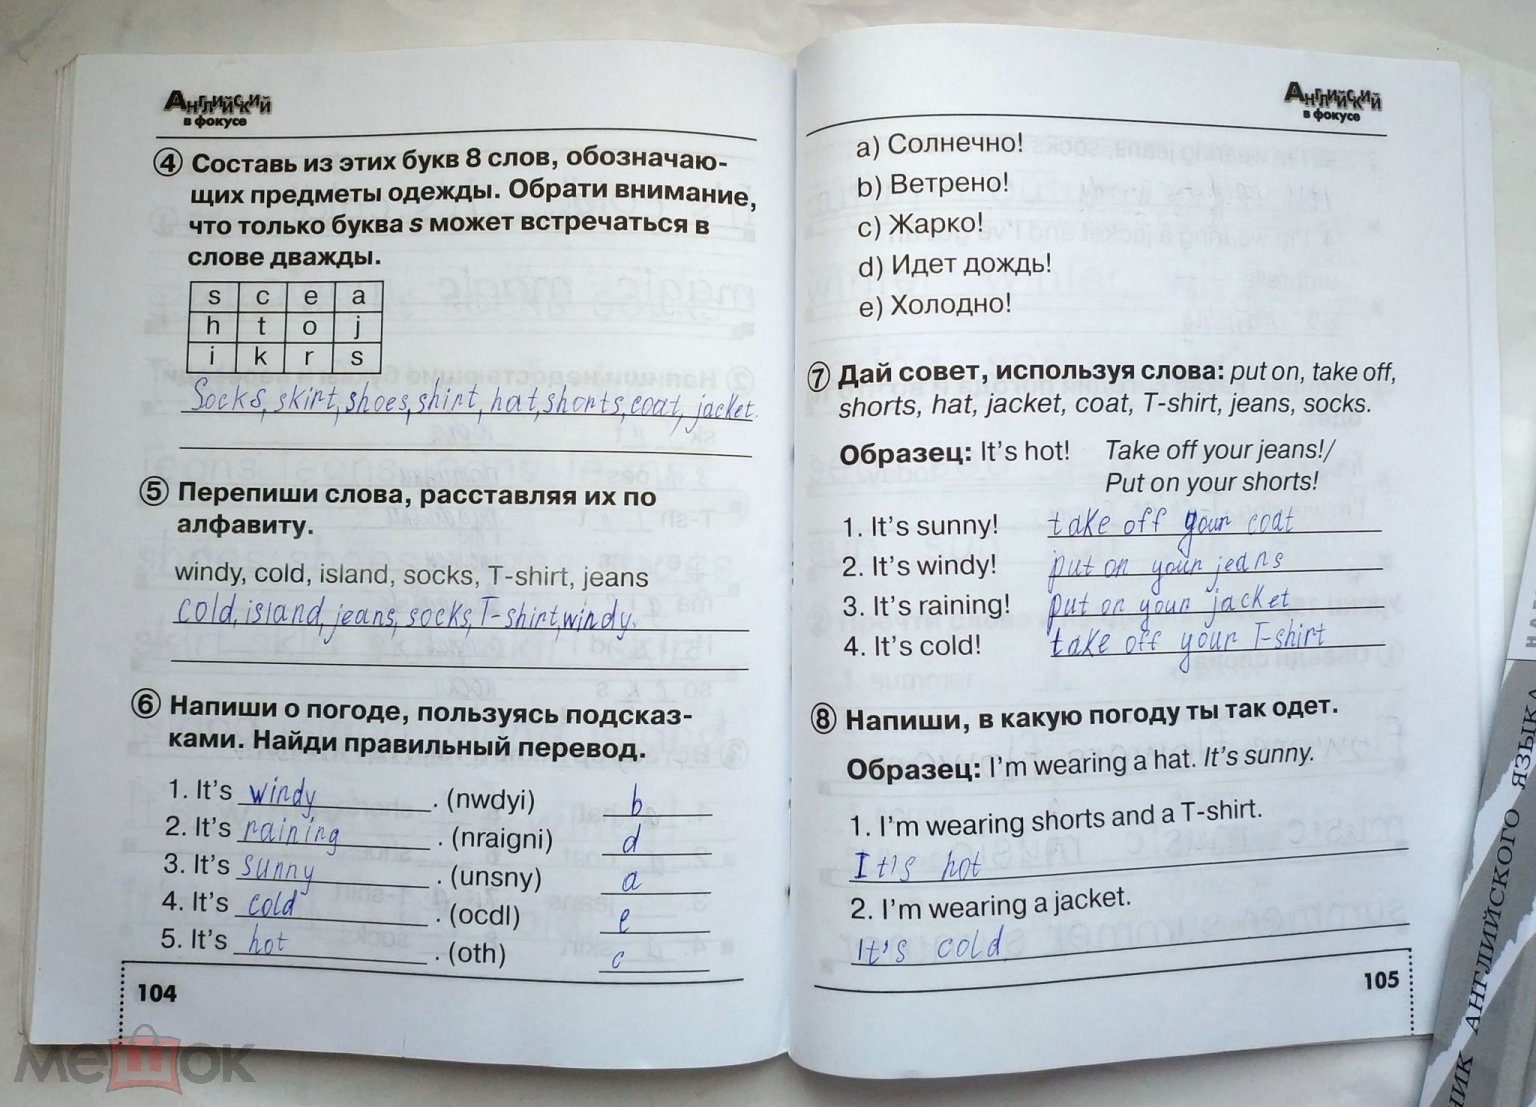 Английский
в фокусе
4 Составь из этих букв 8 слов, обозначаю-
щих предметы одежды. Обрати внимание,
что только буква s может встречаться в
слове дважды.
s c e a
h t o j
i k r s
Socks, skirt, shoes, shirt, hat, shorts, coat, jacket.
5 Перепиши слова, расставляя их по
алфавиту.
windy, cold, island, socks, T-shirt, jeans
cold, island, jeans, socks, T-shirt, windy.
6 Напиши о погоде, пользуясь подсказ-
ками. Найди правильный перевод.
1. It's windy. (nwdyi) b
2. It's raining. (nraigni) d
3. It's sunny. (unsny) a
4. It's cold. (ocdl) e
5. It's hot. (oth) c
104
Английский
в фокусе
a) Солнечно!
b) Ветрено!
c) Жарко!
d) Идет дождь!
e) Холодно!
7 Дай совет, используя слова: put on, take off,
shorts, hat, jacket, coat, T-shirt, jeans, socks.
Образец: It's hot! Take off your jeans!/
Put on your shorts!
1. It's sunny! take off your coat
2. It's windy! put on your jeans
3. It's raining! put on your jacket
4. It's cold! take off your T-shirt
8 Напиши, в какую погоду ты так одет.
Образец: I'm wearing a hat. It's sunny.
1. I'm wearing shorts and a T-shirt.
It's hot
2. I'm wearing a jacket.
It's cold
105
АНГЛИЙСКОГО ЯЗЫКА
мешок